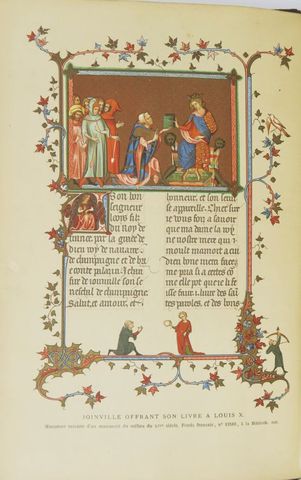 son bon
seigneur
looys filz
du Roy de
france, par la grace de
dieu roy de navarre
de champaigne et de brie
conte palazin. Jehan
sire de joinville son se
neschal de champaigne
Salut, et amour, et
honneur, et son servise
appareillie. Chier sire
je vous foiz a savoir
que ma dame la roy
ne vostre mere qui
moult mamoit a cui
dieu bone merci face
me pria si a certes co
me elle pot que je li fe
isse faire .i. livre des sai
tes paroles, et des bons
JOINVILLE OFFRANT SON LIVRE A LOUIS X.
d'un manuscrit du milieu du XIVe siècle. Fonds français, n° 13568, à la Biblioth. nat.